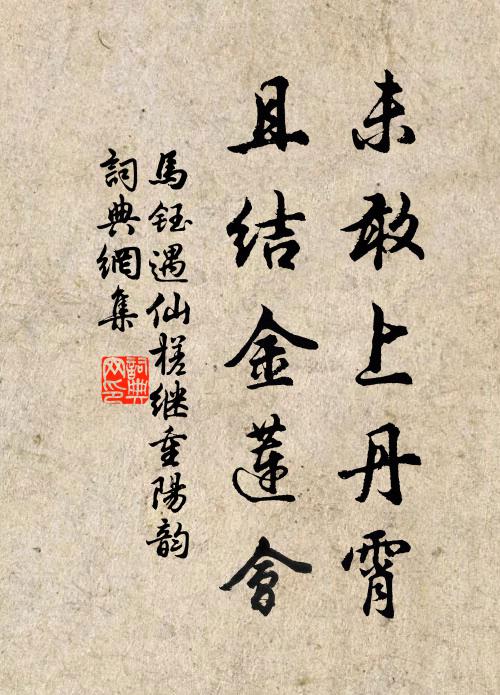 未敢上丹霄
且結金蓮會
馬鈺遇仙槎继重陽韵
詞典網集
詞典
网印